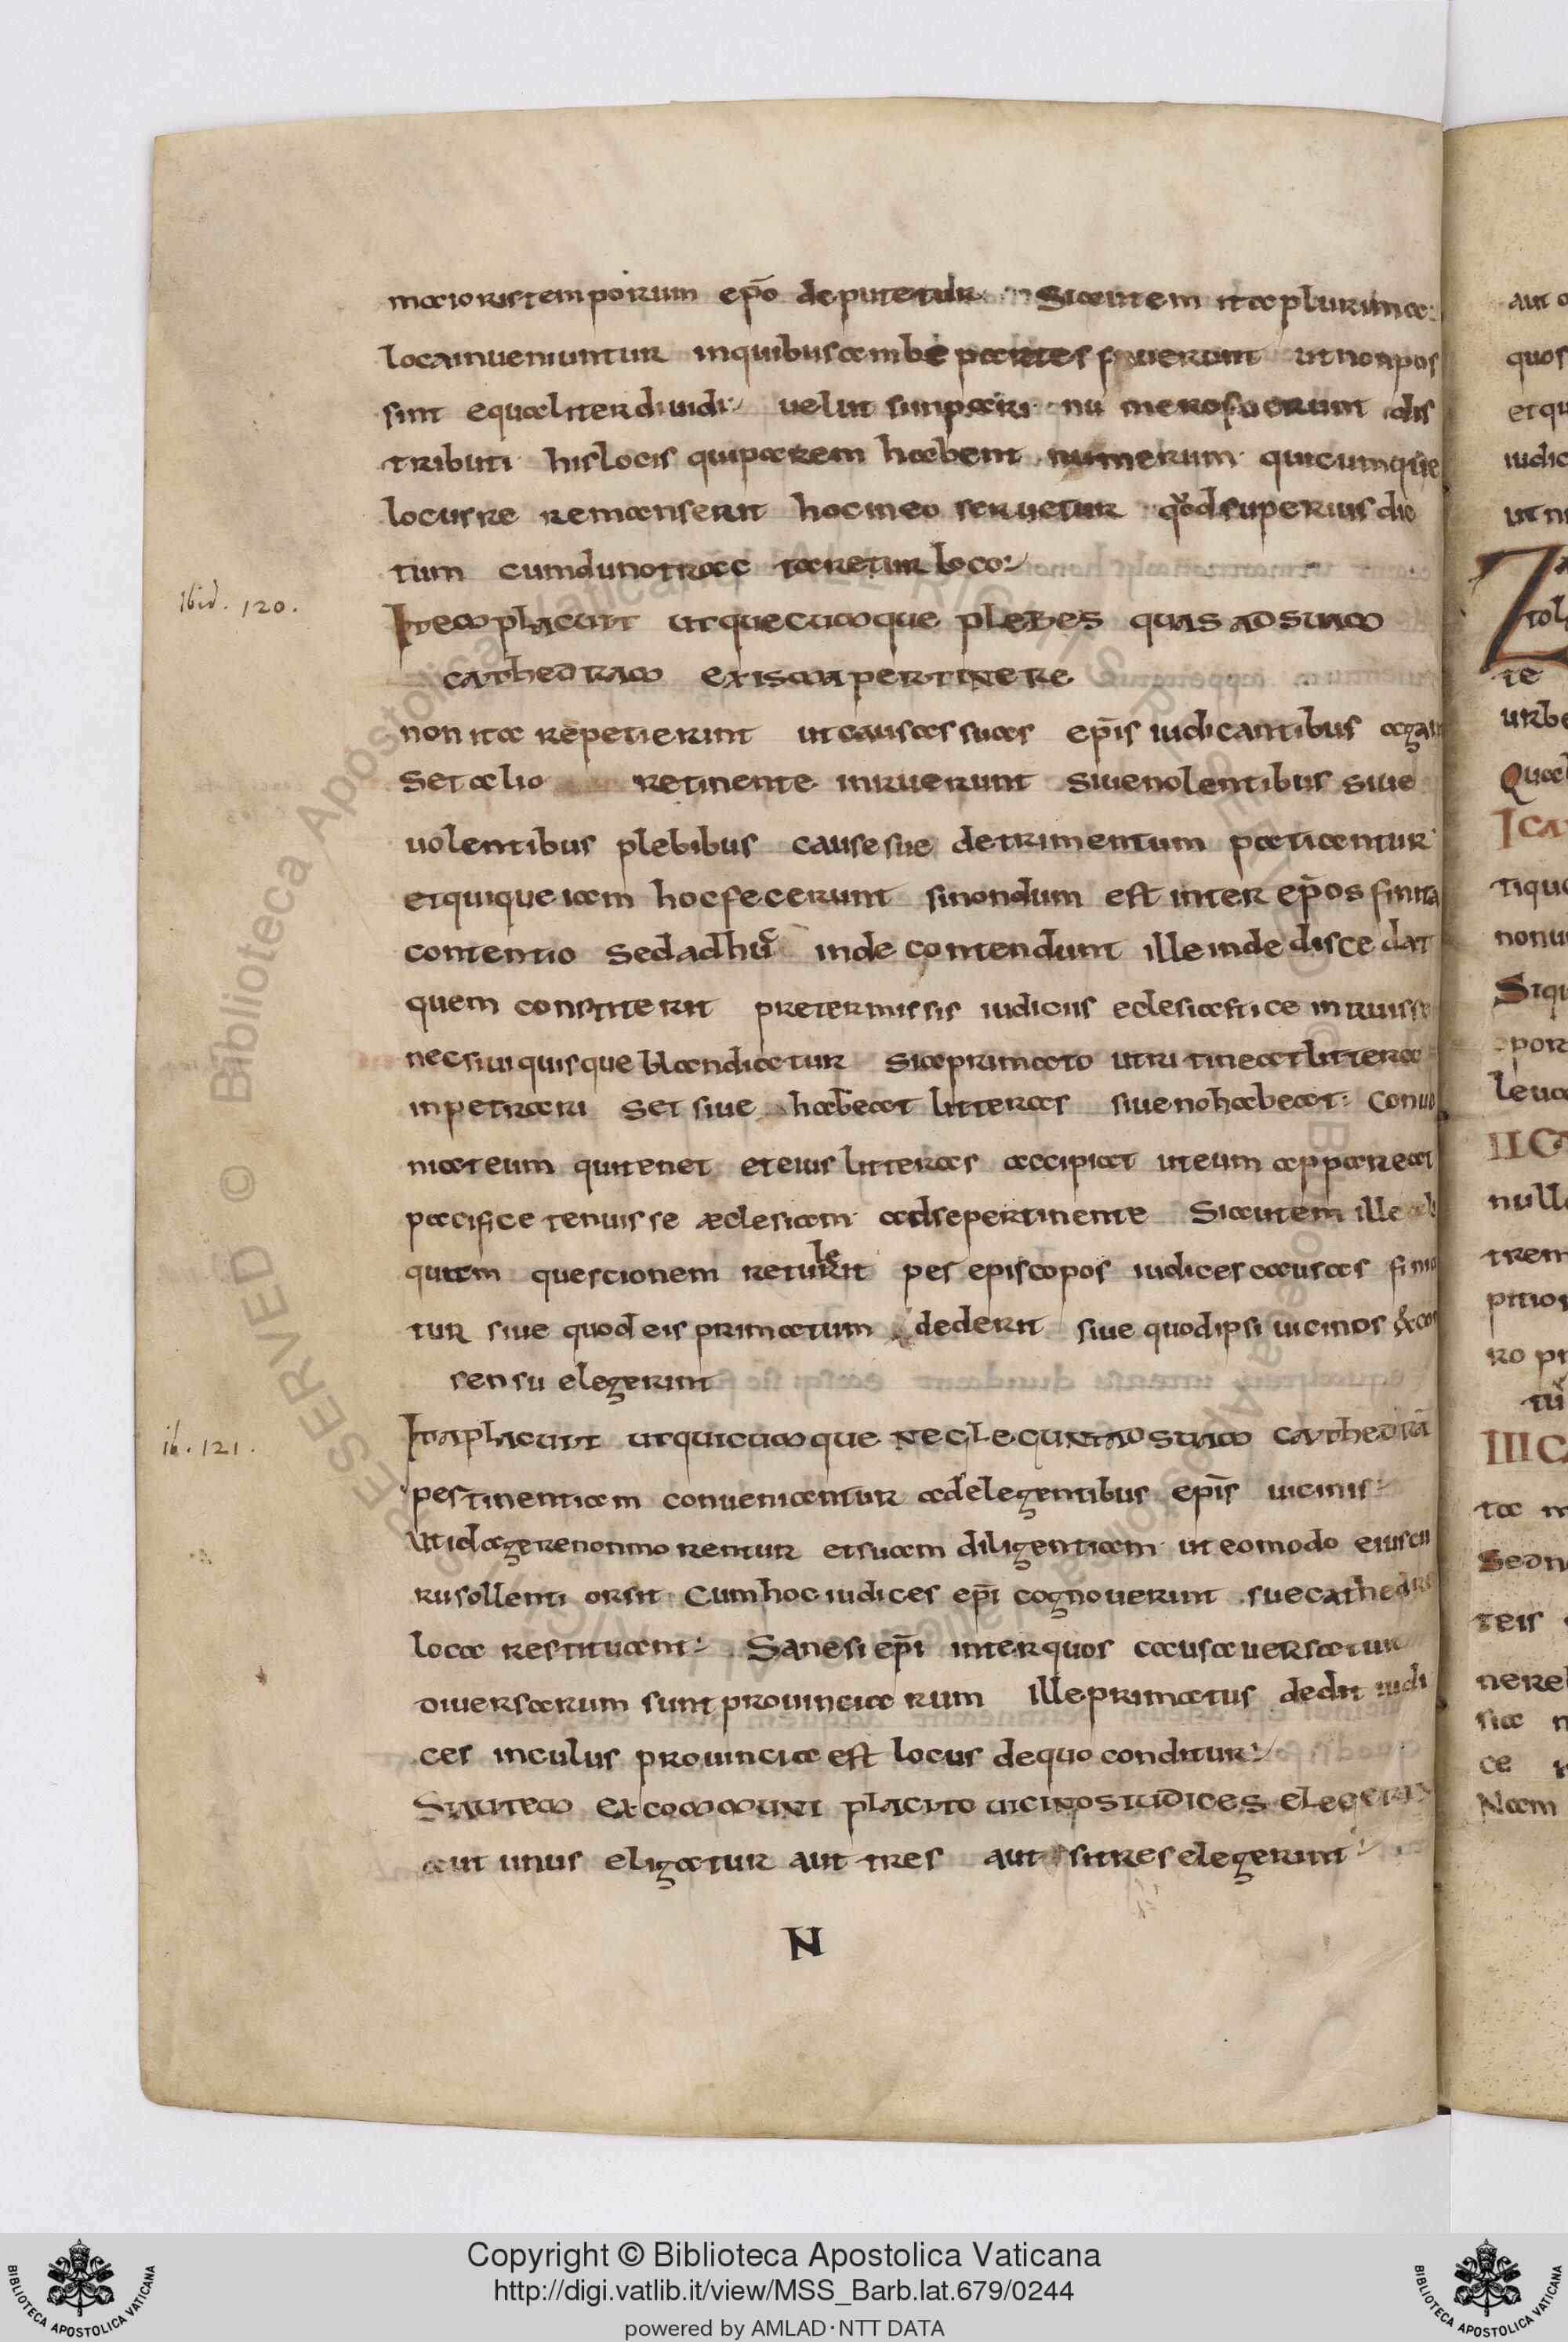 maioris temporum ep̄o deputetur Si autem ita plurima
loca inueniuntur in quibus ambe partes fuerunt ut non pos
sint equaliter diuidi uelut sunpari nu mero fuerunt dis
tributi his locis qui parem habent numerum quicumque
locus re remanserit hoc in eo seruetur quod superius dic
tum cum du notrac taretur loco
Ibid. 120.
Item placuit ut quecumque plebes quas ad suam
cathedram exisma pertinere
non ita repetierint ut causas suas ep̄is iudicantibus agan
Set alio retinente inruerunt siue nolentibus siue
uolentibus plebibus cause sue detrimentum patiantur
et quique iam hoc fecerunt si nondum est inter ep̄os finita
contentio sed adhuc inde contendunt ille inde discedat
quem constiterit pretermissis iudiciis eclesiastice inruisse
nec siui quisque blandiatur si a primato utri tineat littera
inpetrari Set siue habeat litteras siue no habeat conue
niat eum qui tenet et eius litteras accipiat ut eum appareat
pacifice tenuisse æclesiam ad se pertinente Si autem ille
quitem quescionem returlerit pes episcopos iudices causas fini
tur siue quod eis primatum dederit siue quod ipsi uicinos
sensu elegerint
ib. 121.
Ita placuit ut quicumque neclegunt ad suam cathedrā
pestinentiam conueniantur a delegentibus ep̄is uicinis
Ut id agere non morentur et suam diligentiam ut eo modo eius cu
ru sollenti orsit Cum hoc iudices ep̄i cognouerint sue cathedre
loca restituant Sane si ep̄i inter quos causa uersatur
diuersarum sunt prouincia rum ille primatus dedit iudi
ces in culus prouincia est locus de quo conditur
Si autem ex communi placito uicinos iudices elegerin
aut unus eligatur aut tres aut si tres elegerint
N
aut
quos
iudic
Z
tol
te
urbe
nonu
Siqu
por
leua
nullo
trem
pitior
ro pr
IIII CA
ta
Sedn
teis
nere
ce
Nam
RESERVED © Biblioteca Apostolica Vaticana ALL RIGHTS RESERVED © Biblioteca Apostolica Vaticana
Copyright © Biblioteca Apostolica Vaticana
http://digi.vatlib.it/view/MSS_Barb.lat.679/0244
powered by AMLAD·NTT DATA
BIBLIOTECA APOSTOLICA VATICANA
BIBLIOTECA APOSTOLICA VATICANA